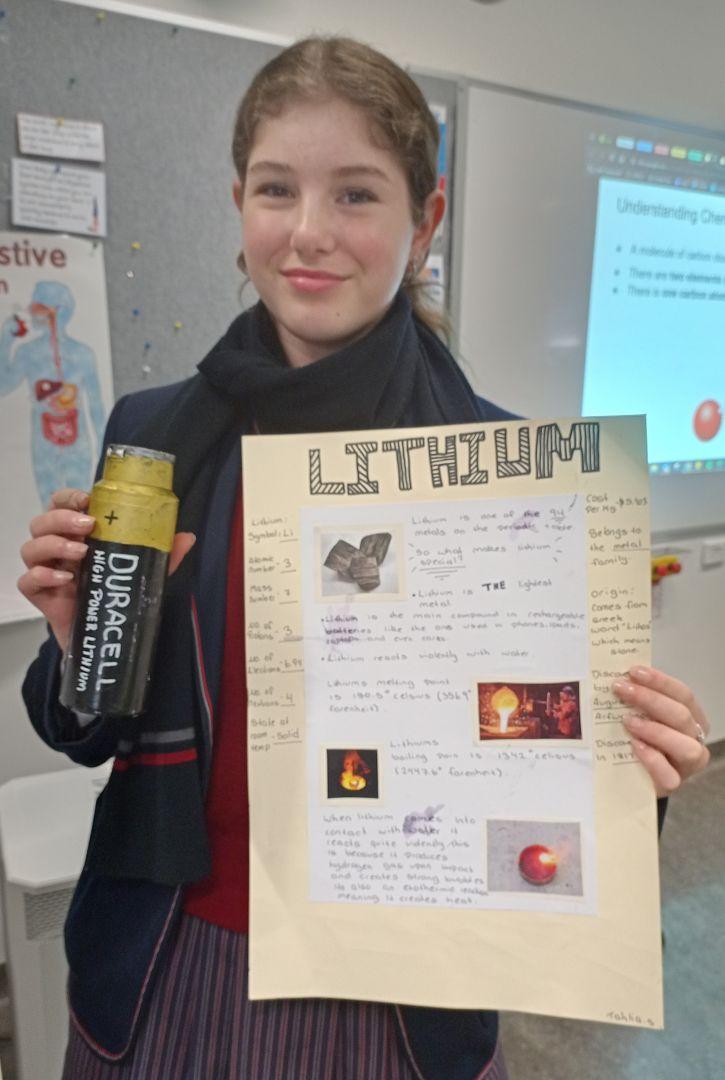 stive
Understanding Chem
A molecule of carbon dio
There are two elements
There is one carbon ato
+
DURACELL
HIGH POWER LITHIUM
LITHIUM
Lithium:
Symbol: Li
Atomic
number - 3
Mass
number - 7
no. of
Protons - 3
no. of
Electrons
no. of
Neutrons - 4
State at
room - Solid
temp
Lithium is one of the 94
metals on the periodic table
So what makes lithium
special?
• Lithium is THE lightest
metal
• Lithium is the main compound in rechargeable
batteries like the ones used in phones, ipads,
and even cars.
• Lithium reacts violently with water.
Lithiums melting point
is 180.5° celsius (356.9°
farenheit).
Lithiums
boiling poin is 1342° celsius
(2447.6° farenheit).
When lithium comes into
contact with water it
reacts quite violently, this
is because it produces
hydrogen gas upon impact
and creates strong bubbles
its also an exothermic reaction
meaning it creates heat.
Cost
Per Kg
Belongs to
the metal
family.
Origin:
Comes from
Greek
word "Lithos"
which means
stone
Disco
by
August
Arfw
Disco
in 1817
Tahlia.S